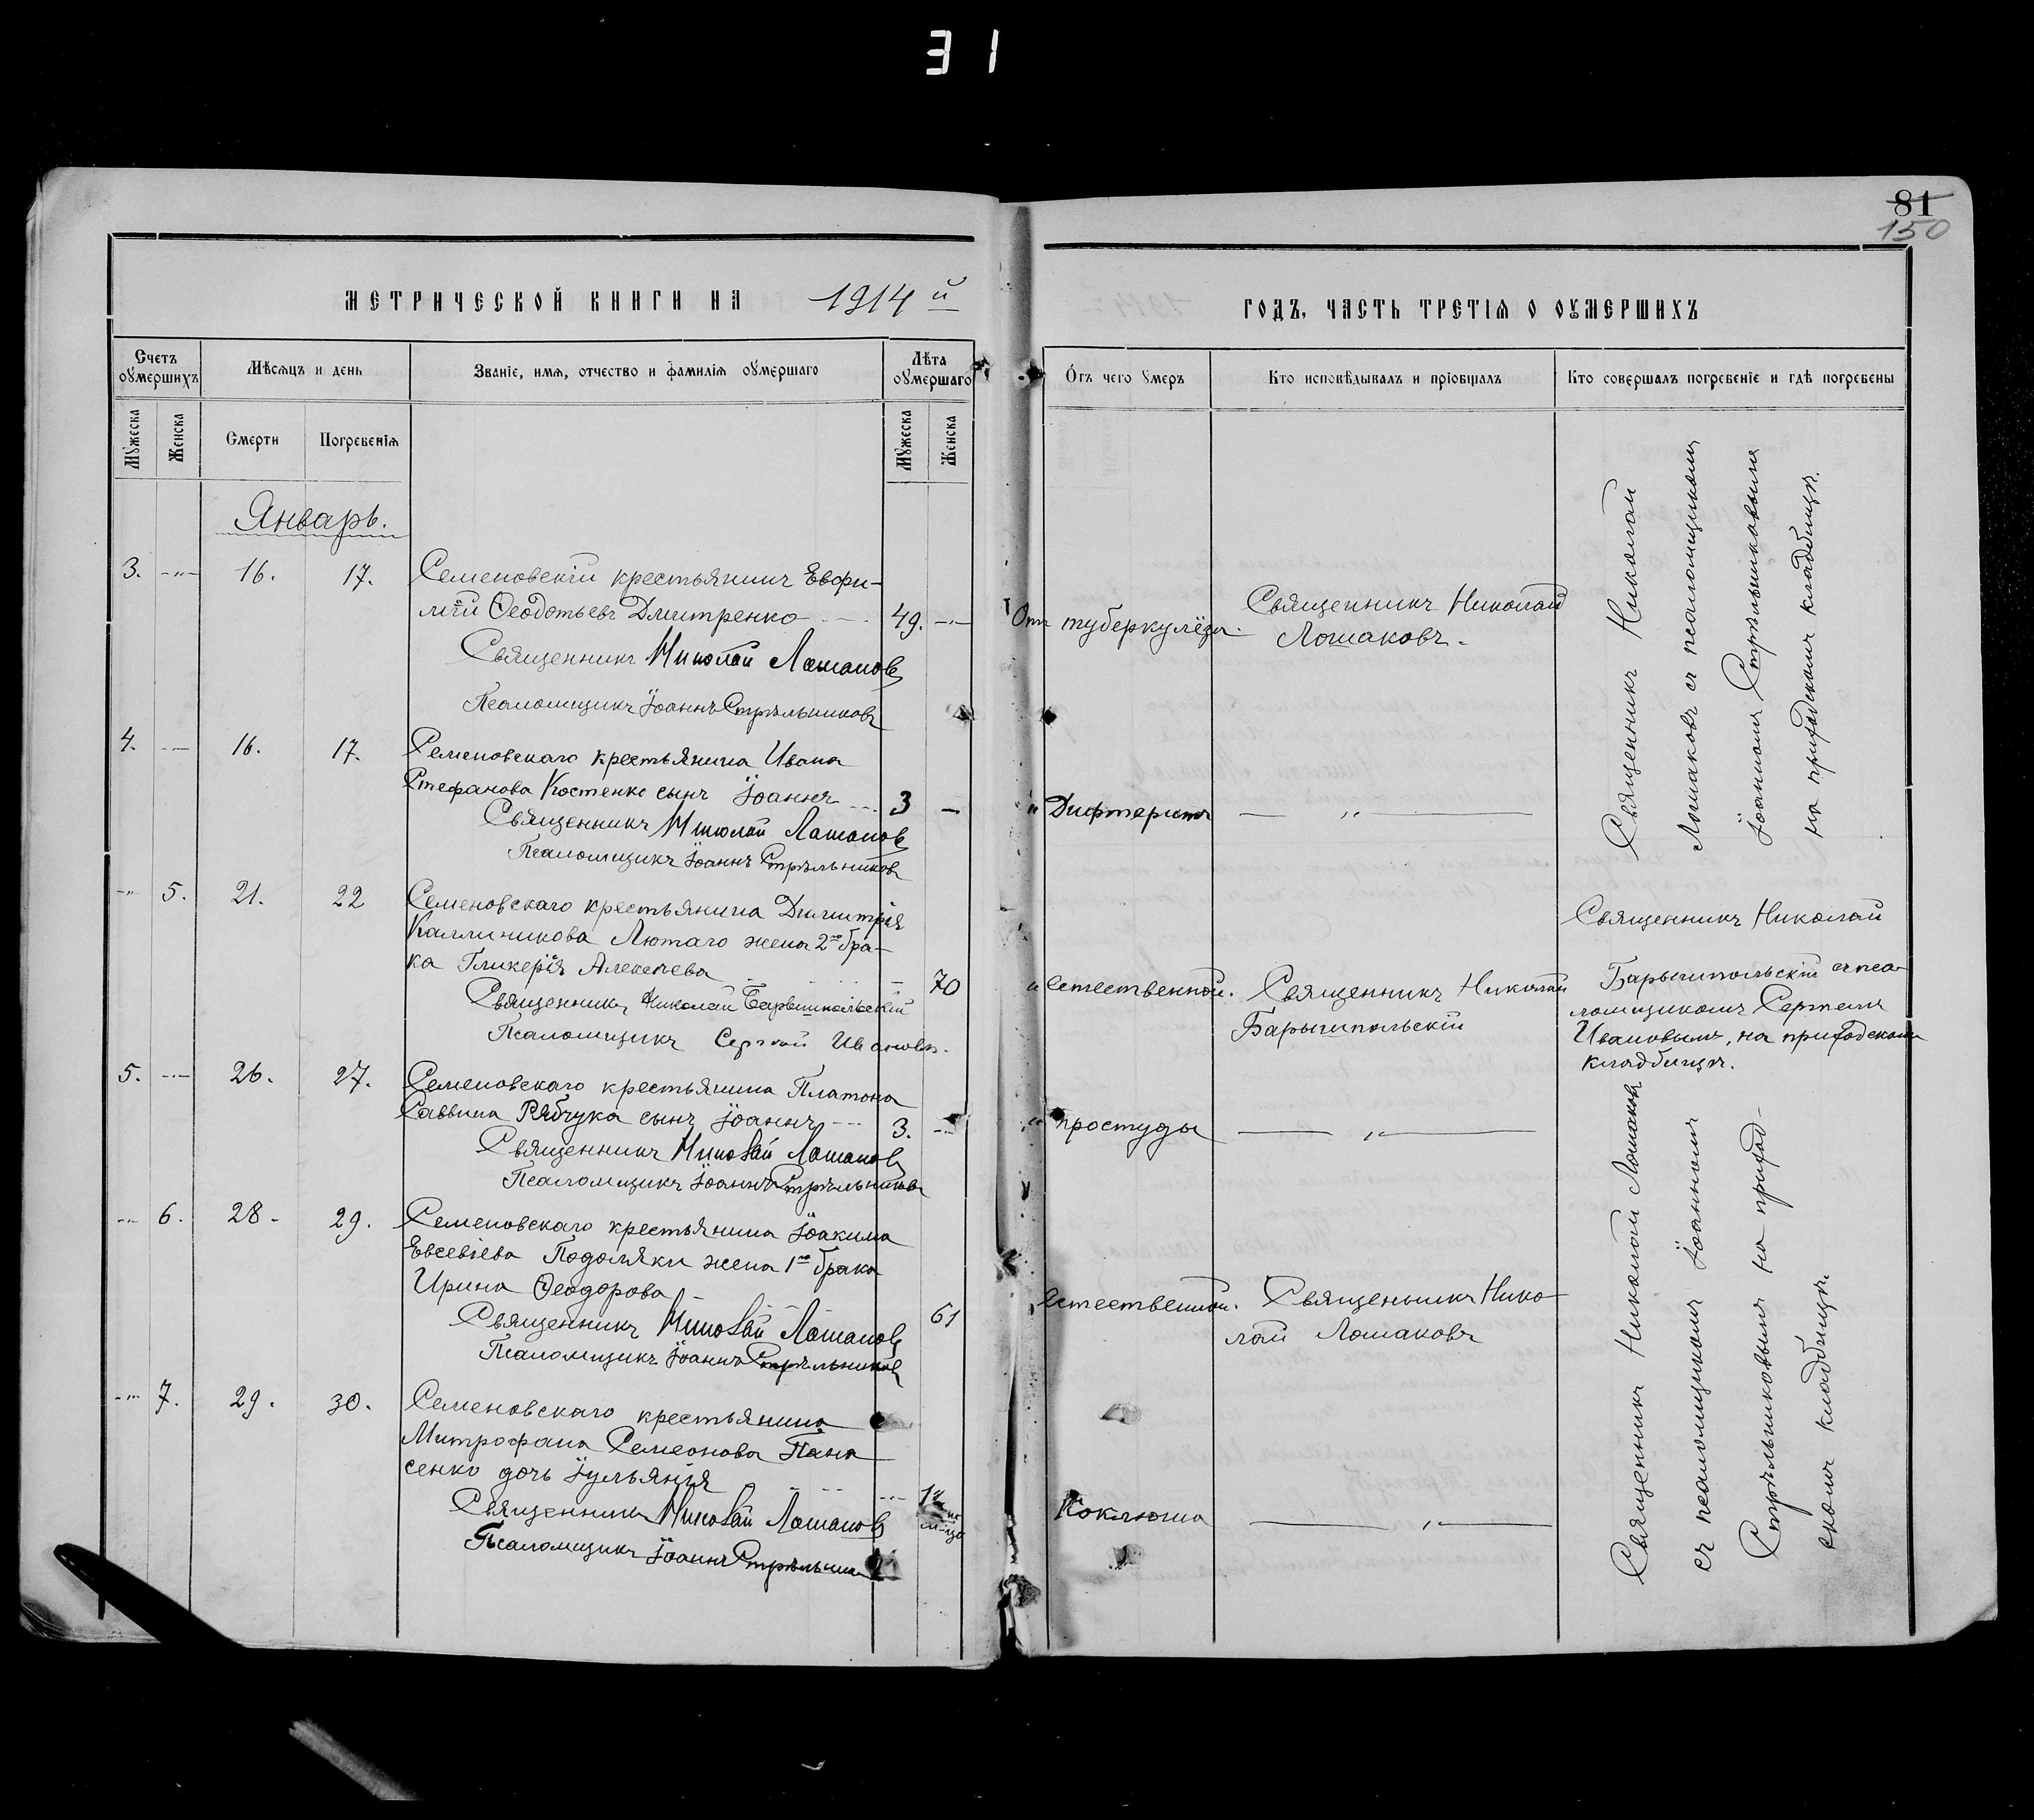 31
81
150
МЕТРИЧЕСКОЙ КНИГИ НА 1914й
ГОДЪ, ЧАСТЬ ТРЕТІѦ О ОУМЕРШИХЪ
Счетъ оумершихъ
Мѣсѧцъ и день
Званіе, имѧ, отчество и фамиліѧ оумершаго
Лѣта оумершаго
Отъ чего умеръ
Кто исповѣдывалъ и пріобщалъ
Кто совершалъ погребеніе и гдѣ погребены
Мужеска
Женска
Смерти
Погребеніѧ
Мужеска
Женска
Январь.
3. -"- 16. 17. Семеновскій крестьянинъ Евфи-
мій Ѳеодотьевъ Дмитренко 49. -"- Отъ туберкулёза. Священникъ Николай
Лошаковъ.
Священникъ Николай Лошаковъ
Псаломщикъ Іоаннъ Стрѣльниковъ
4. -"- 16. 17. Семеновскаго крестьянина Ивана
Стефанова Костенко сынъ Іоаннъ 3 - " Дифтерита — " —
Священникъ Николай Лошаковъ
Псаломщикъ Іоаннъ Стрѣльниковъ
Священникъ Николай
Лошаковъ съ псаломщикомъ
Іоанномъ Стрѣльниковымъ
на приходскомъ кладбищѣ.
-"- 5. 21. 22 Семеновскаго крестьянина Димитрія
Каллиникова Лютаго жена 2го бра-
ка Гликерія Алексѣева - 70 " естественной. Священникъ Николай
Барышпольскій
Священникъ Николай Барышпольскій
Псаломщикъ Сергѣй Ивановъ.
Священникъ Николай
Барышпольскій съ пса-
ломщикомъ Сергѣемъ
Ивановымъ, на приходскомъ
кладбищѣ.
5. -"- 26. 27. Семеновскаго крестьянина Платона
Саввина Рябчука сынъ Іоаннъ 3. -"- " простуды — " —
Священникъ Николай Лошаковъ
Псаломщикъ Іоаннъ Стрѣльниковъ
-"- 6. 28. 29. Семеновскаго крестьянина Іоакима
Евсевіева Подоляки жена 1го брака
Ирина Ѳеодорова - 61 естественной. Священникъ Нико-
лай Лошаковъ
Священникъ Николай Лошаковъ
Псаломщикъ Іоаннъ Стрѣльниковъ
-"- 7. 29. 30. Семеновскаго крестьянина
Митрофана Семеонова Пана
сенко дочь Іульянія
Коклюша — " —
Священникъ Николай Лошаковъ
Псаломщикъ Іоаннъ
Священникъ Николай Лошаковъ
съ псаломщикомъ Іоанномъ
Стрѣльниковымъ на приход-
скомъ кладбищѣ.